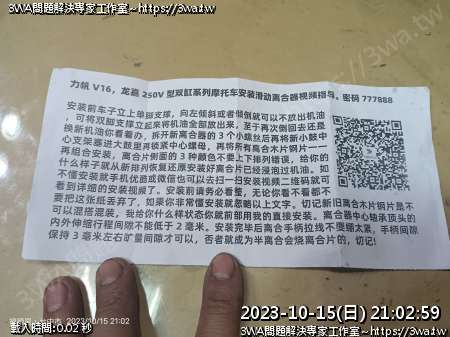 3WA問題解決專家工作室~https://3wa.tw
力帆 V16，龙嘉 250V 型双缸系列摩托车安装滑动离合器视频指导。密码 777888
安装前车子立上单脚支撑，向左倾斜或者倾倒就可以不放出机油
，可将双脚支撑立起来将机油全部放出来，至于再次倒回去还是
换新机油你看着办，拆开新离合器的 3 个小螺丝后再将新小鼓中
心支架器进大鼓里再锁紧中心螺母，再将所有离合木片钢片一一
再组合安装，离合片侧面的 3 种颜色不要上下排列错误，给你的
什么样子就从新排列恢复还原安装好离合片已经浸泡过机油。如
不懂安装就手机优质或微信也可以去扫一扫安装视频二维码就可
看到详细的安装视频了。安装前请务必看懂，无论你看不看都不
要把这张纸丢弃了，如果你非常懂安装就忽略以上文字。切记新旧离合木片钢片是不
可以混搭混装，我给你什么样状态你就前部用我的直接安装。离合器中心轴承顶头的
内外伸缩行程间隙不能低于 2 毫米。安装完毕后离合手柄拉线不要绷太紧，手柄间隙
保持 3 毫米左右旷量间隙才可以，否者就成为半离合会烧离合片的，切记!
2023/10/15 21:02
2023-10-15(日) 21:02:59
載入時間:0.02 秒
3WA問題解決專家工作室~https://3wa.tw